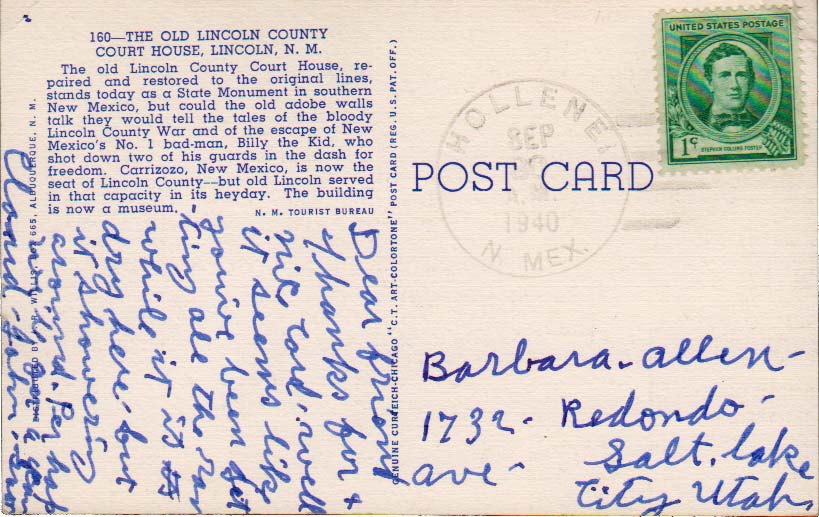 160—THE OLD LINCOLN COUNTY
COURT HOUSE, LINCOLN, N. M.
The old Lincoln County Court House, re-
paired and restored to the original lines,
stands today as a State Monument in southern
New Mexico, but could the old adobe walls
talk they would tell the tales of the bloody
Lincoln County War and of the escape of New
Mexico's No. 1 bad-man, Billy the Kid, who
shot down two of his guards in the dash for
freedom. Carrizozo, New Mexico, is now the
seat of Lincoln County--but old Lincoln served
in that capacity in its heyday. The building
is now a museum.
N. M. TOURIST BUREAU
Dear friend
thanks for
nice card, well
it seems like
you've been get
ting all the rai
while it is
dry here, but
it showering
around. Per hap
Claud
DISTRIBUTED BY J. R. WILLIS, BOX 665, ALBUQUERQUE, N. M.
GENUINE CURTEICH-CHICAGO "C. T. ART-COLORTONE" POST CARD (REG. U. S. PAT. OFF.)
POST CARD
HOLLENE,
SEP
A.M.
1940
N. MEX.
UNITED STATES POSTAGE
1¢
STEPHEN COLLINS FOSTER
Barbara-allen-
1732- Redondo-
ave-
Salt, lake
City Utah